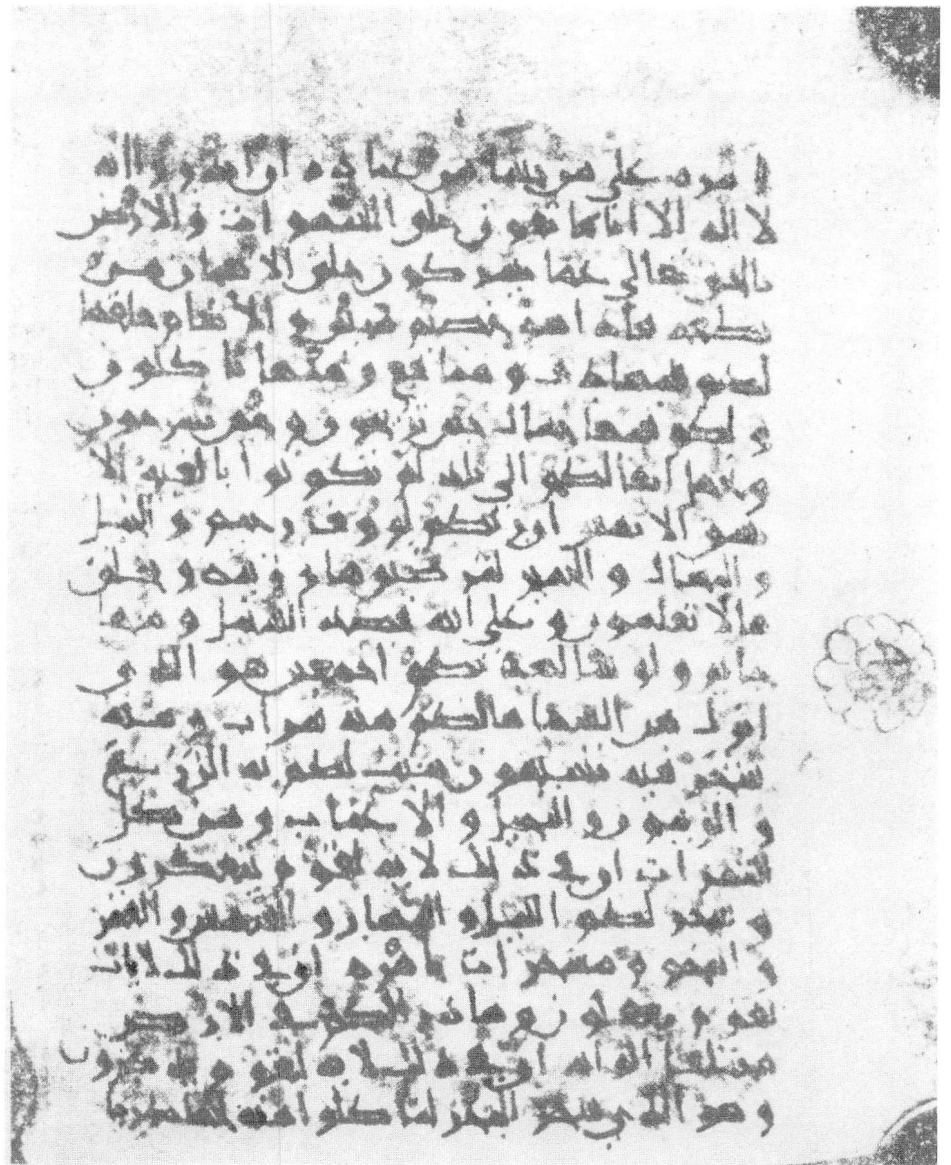 امره على من يشا من عباده ان انذروا انه
لا اله الا انا فاتقون خلق السموات والارض
بالحق تعالى عما يشركون خلق الانسان من
نطفة فاذا هو خصيم مبين والانعام خلقها
لكم فيها دف ومنافع ومنها تاكلون
ولكم فيها جمال حين تريحون وحين تسرحون
وتحمل اثقالكم الى بلد لم تكونوا بالغيه الا
بشق الانفس ان ربكم لروف رحيم والخيل
والبغال والحمير لتركبوها وزينة ويخلق
ما لا تعلمون وعلى الله قصد السبيل ومنها
جاير ولو شا لهديكم اجمعين هو الذي
انزل من السما ما لكم منه شراب ومنه
شجر فيه تسيمون ينبت لكم به الزرع
والزيتون والنخيل والاعناب ومن كل
الثمرات ان في ذلك لاية لقوم يتفكرون
وسخر لكم الليل والنهار والشمس والقمر
والنجوم مسخرات بامره ان في ذلك لايات
لقوم يعقلون وما ذرا لكم في الارض
مختلفا الوانه ان في ذلك لاية لقوم يذكرون
وهو الذي سخر البحر لتاكلوا منه لحما طريا